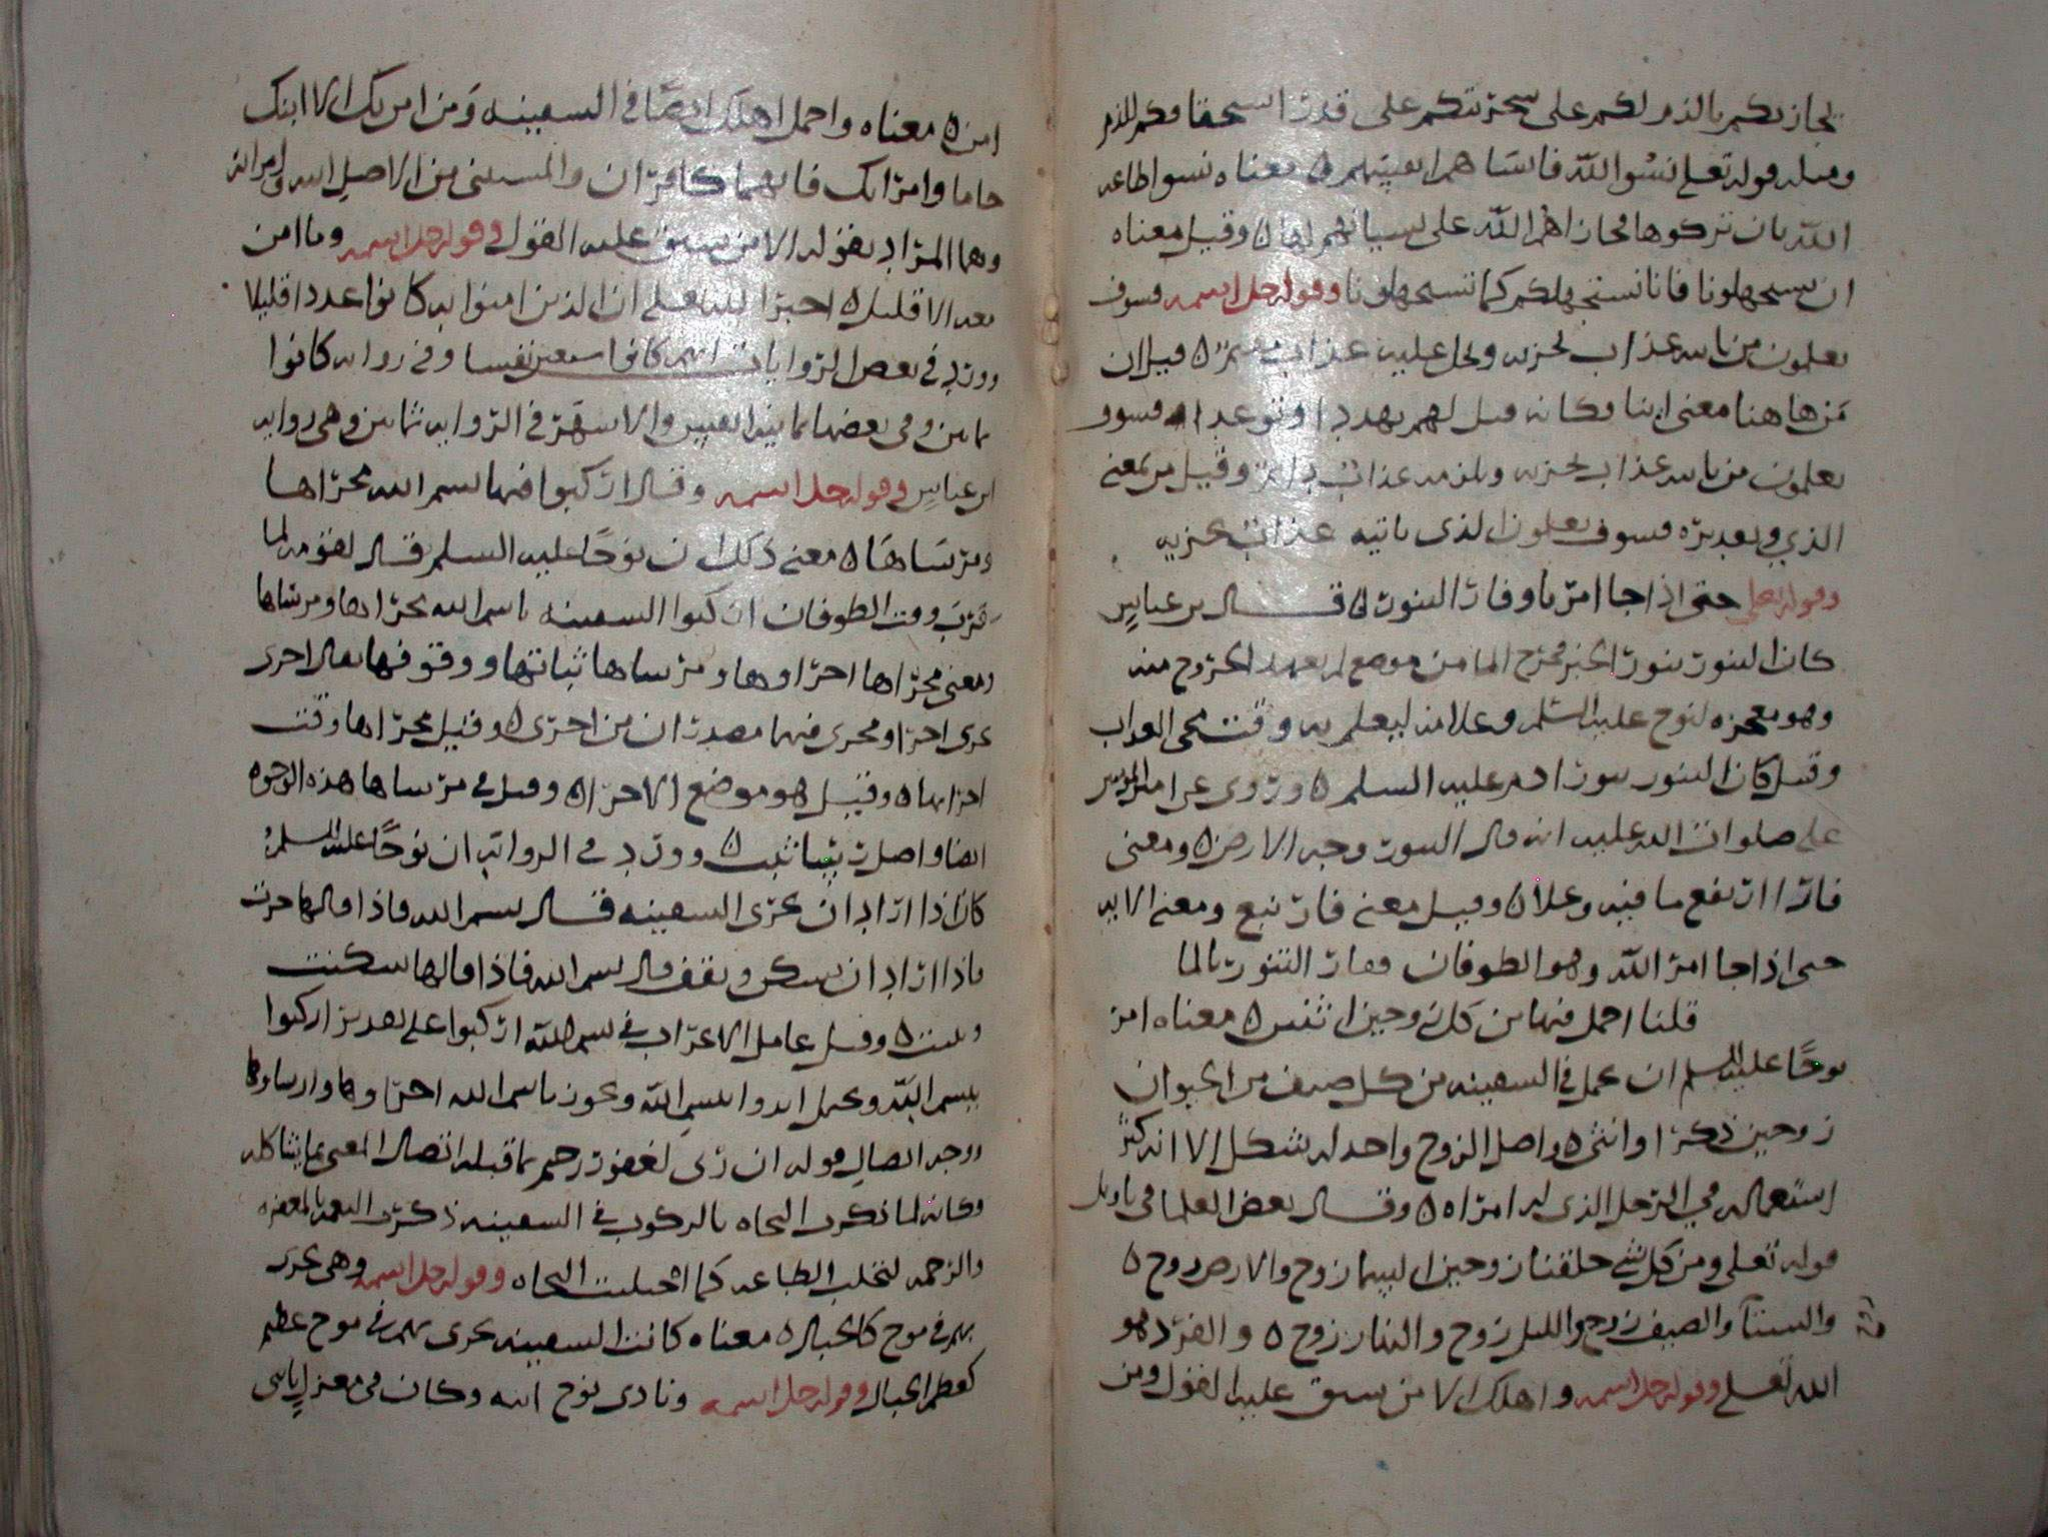 يجازيكم بالذم لكم على سخريتكم على قدر استحقاقكم للذم
ومثله قوله تعلى نسوا الله فانساهم انفسهم ٥ معناه نسوا طاعه
الله بان تركوها فجازاهم الله على نسيانهم لها ٥ وقيل معناه
ان تستجهلونا فانا نستجهلكم كما تستجهلونا وقوله جل اسمه فسوف
تعلمون من ياتيه عذاب يخزيه ويحل عليه عذاب مقيم ٥ قيل ان
من هاهنا معنى اينا فكانه قيل لهم تهددا وتوعدا فسوف
تعلمون من ياتيه عذاب يخزيه ويلزمه عذاب دائم وقيل من بمعنى
الذي وتقديره فسوف تعلمون الذى ياتيه عذاب يخزيه
وقوله تعلى حتى اذا جا امرنا وفار التنور قال بن عباس
كان التنور تنور الخبز فخرج الما من موضع لم يعهد الخروج منه
وهو معجزه لنوح عليه السلم وعلامه ليعلم به وقت مجى العذاب
وقيل كان التنور تنور ادم عليه السلم ٥ وروى عن امير المومنين
على صلوات الله عليه انه قال التنور وجه الارض ٥ ومعنى
فار ارتفع ما فيه وعلا ٥ وقيل معنى فار نبع ومعنى الايه
حتى اذا جا امر الله وهو الطوفان وفار التنور بالما
قلنا احمل فيها من كل زوجين اثنين ٥ معناه امر
نوحا عليه السلم ان يحمل في السفينه من كل صنف من الحيوان
زوجين ذكرا وانثى ٥ واصل الزوج واحد له شكل الا انه كثر
استعماله في الرجل الذى له امراه ٥ وقال بعض العلما في تاويل
قوله تعلى ومن كل شي خلقنا زوجين السما زوج والارض زوج ٥
والشتا والصيف زوج والليل زوج والنهار زوج ٥ والفرد هو
الله تعلى وقوله جل اسمه واهلك الا من سبق عليه القول ومن
امن ٥ معناه واحمل اهلك ايضا في السفينه ومن امن بك الا ابنك
حاما وامراتك فانهما كافران والمستثنى من الاصل ابنه وامراته
وهما المراد بقوله الا من سبق عليه القول وقوله جل اسمه وما امن
معه الا قليل ٥ اخبر الله تعلى ان الذين امنوا به كانوا عددا قليلا
وورد في بعض الروايات انهم كانوا سبعين نفسا وفي روايه كانوا
ثمانين وفي بعضها ثمانيه انفس والاشهر في الروايه ثمانين وهى روايه
ابن عباس وقوله جل اسمه وقال اركبوا فيها بسم الله مجراها
ومرساها ٥ معنى ذلك ان نوحا عليه السلم قال لقومه لما
قرب وقت الطوفان اركبوا السفينه باسم الله مجراها ومرساها
ومعنى مجراها اجراوها ومرساها ثباتها ووقوفها يقال اجرى
يجرى اجرا ومجرى فهما مصدران من اجرى ٥ وقيل مجراها وقت
اجرايها ٥ وقيل هو موضع الاجرا ٥ وقيل في مرساها هذه الوجوه
ايضا واصل رسا ثبت ٥ وورد في الروايه ان نوحا عليه السلم
كان اذا اراد ان يجرى السفينه قال بسم الله فاذا قالها جرت
فاذا اراد ان تسكن وتقف قال بسم الله فاذا قالها سكنت
وثبتت ٥ وقيل عامل الاعراب في بسم الله اركبوا على تقدير اركبوا
بسم الله ويحتمل ابدوا بسم الله ويجوز باسم الله اجراوها وارساوها
ووجه اتصال قوله ان ربى لغفور رحيم بما قبله اتصال المعنى بما يشاكله
وكانه لما ذكرت النجاه بالركوب في السفينه ذكرت النعمه بالمغفره
والرحمه لتجلب الطاعه كما اجلبت النجاه وقوله جل اسمه وهى تجرى
بهم في موج كالجبال ٥ معناه كانت السفينه تجرى بهم في موج عظيم
كعظم الجبال وقوله جل اسمه ونادى نوح ابنه وكان في معزل يابنى